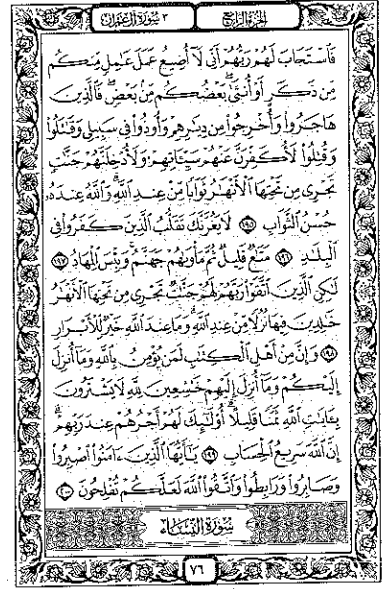 الجزء الرابع ٣ سورة آل عمران
فَٱسْتَجَابَ لَهُمْ رَبُّهُمْ أَنِّي لَآ أُضِيعُ عَمَلَ عَٰمِلٍ مِّنكُم
مِّن ذَكَرٍ أَوْ أُنثَىٰۖ بَعْضُكُم مِّنۢ بَعْضٍۖ فَٱلَّذِينَ
هَاجَرُوا۟ وَأُخْرِجُوا۟ مِن دِيَٰرِهِمْ وَأُوذُوا۟ فِي سَبِيلِي وَقَٰتَلُوا۟
وَقُتِلُوا۟ لَأُكَفِّرَنَّ عَنْهُمْ سَيِّـَٔاتِهِمْ وَلَأُدْخِلَنَّهُمْ جَنَّٰتٍ
تَجْرِي مِن تَحْتِهَا ٱلْأَنْهَٰرُ ثَوَابًا مِّنْ عِندِ ٱللَّهِۗ وَٱللَّهُ عِندَهُۥ
حُسْنُ ٱلثَّوَابِ ١٩٥ لَا يَغُرَّنَّكَ تَقَلُّبُ ٱلَّذِينَ كَفَرُوا۟ فِي
ٱلْبِلَٰدِ ١٩٦ مَتَٰعٌ قَلِيلٌ ثُمَّ مَأْوَىٰهُمْ جَهَنَّمُۚ وَبِئْسَ ٱلْمِهَادُ ١٩٧
لَٰكِنِ ٱلَّذِينَ ٱتَّقَوْا۟ رَبَّهُمْ لَهُمْ جَنَّٰتٌ تَجْرِي مِن تَحْتِهَا ٱلْأَنْهَٰرُ
خَٰلِدِينَ فِيهَا نُزُلًا مِّنْ عِندِ ٱللَّهِۗ وَمَا عِندَ ٱللَّهِ خَيْرٌ لِّلْأَبْرَارِ
١٩٨ وَإِنَّ مِنْ أَهْلِ ٱلْكِتَٰبِ لَمَن يُؤْمِنُ بِٱللَّهِ وَمَآ أُنزِلَ
إِلَيْكُمْ وَمَآ أُنزِلَ إِلَيْهِمْ خَٰشِعِينَ لِلَّهِ لَا يَشْتَرُونَ
بِـَٔايَٰتِ ٱللَّهِ ثَمَنًا قَلِيلًاۗ أُو۟لَٰٓئِكَ لَهُمْ أَجْرُهُمْ عِندَ رَبِّهِمْۗ
إِنَّ ٱللَّهَ سَرِيعُ ٱلْحِسَابِ ١٩٩ يَٰٓأَيُّهَا ٱلَّذِينَ ءَامَنُوا۟ ٱصْبِرُوا۟
وَصَابِرُوا۟ وَرَابِطُوا۟ وَٱتَّقُوا۟ ٱللَّهَ لَعَلَّكُمْ تُفْلِحُونَ ٢٠٠
سورة النساء
٧٦